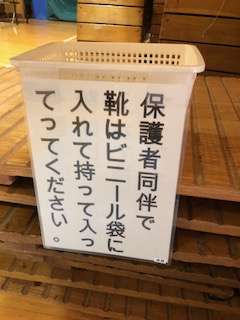 保護者同伴で
靴はビニール袋に
入れて持って入っ
てってください。